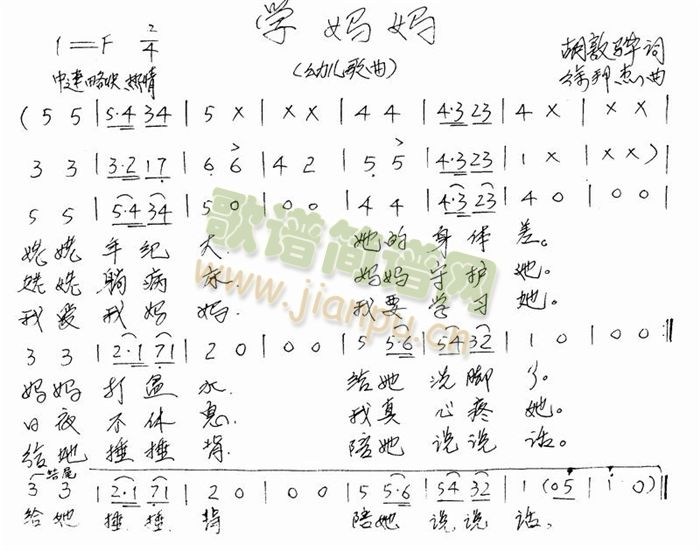 学妈妈
1=F 2/4
(幼儿歌曲)
中速略快 热情
胡敦骅 词
徐邦杰 曲
(5 5 | 5·4 34 | 5 X | X X | 4 4 | 4·3 23 | 4 X | X X |
3 3 | 3·2 17 | 6 6 | 4 2 | 5 5 | 4·3 23 | 1 X | X X) |
5 5 | 5·4 34 | 5 0 | 0 0 | 4 4 | 4·3 23 | 4 0 | 0 0 |
姥姥 年纪 大. 她的 身体 差。
姥姥 躺病 床. 妈妈 守护 她。
我爱 我妈 妈. 我要 学习 她。
3 3 | 2·1 71 | 2 0 | 0 0 | 5 5·6 | 54 32 | 1 0 | 0 0 :||
妈妈 打盆 水. 给她 洗脚丫。
日夜 不休 息. 我真 心疼 她。
给她 捶捶 背. 陪她 说说 话。
结尾
3 3 | 2·1 71 | 2 0 | 0 0 | 5 5·6 | 54 32 | 1 (05 | 1 0) ||
给她 捶捶 背 陪她 说说 话。
歌谱简谱网
www.jianpu.cn